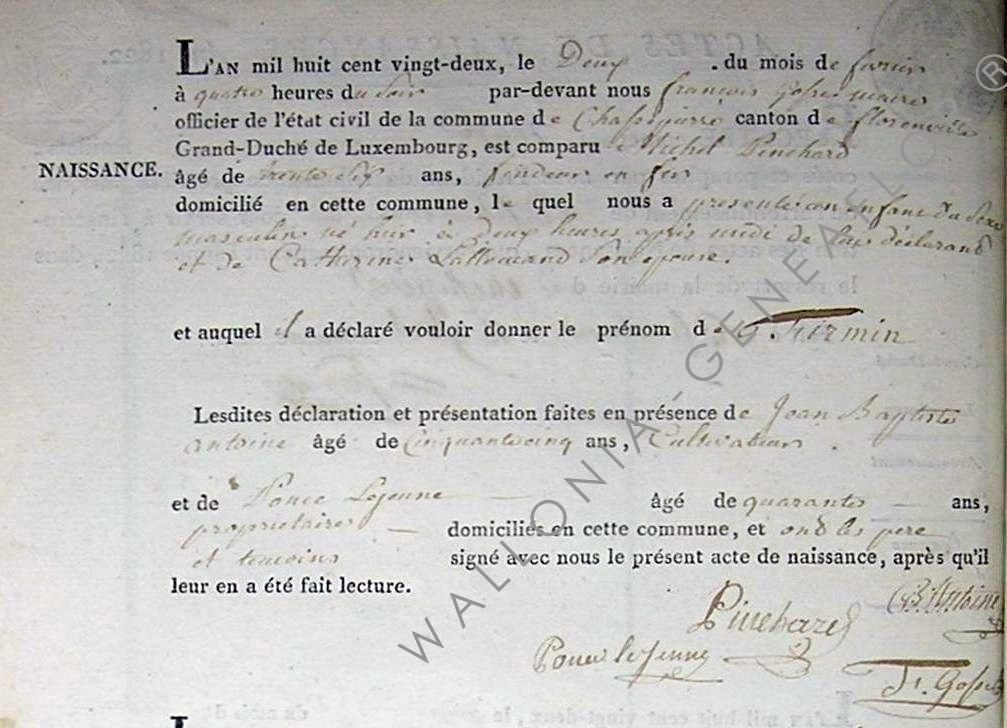 L'AN mil huit cent vingt-deux, le Deux . du mois de fevrier
à quatre heures du soir par-devant nous françois Gofset maire
officier de l'état civil de la commune de Chassepierre canton de florenville
Grand-Duché de Luxembourg, est comparu Michel Pinchard
NAISSANCE.
âgé de trente Six ans, fendeur en fer
domicilié en cette commune, le quel nous a presenté un enfant du Sexe
masculin né hier à Deux heures après midi de lui déclarant
et de Catherine Lallemand Son epouse.
et auquel il a déclaré vouloir donner le prénom de Firmin
Lesdites déclaration et présentation faites en présence de Jean Baptiste
antoine âgé de Cinquantecinq ans, Cultivateur
et de Ponce Lejeune âgé de quarante ans,
proprietaires domiciliés en cette commune, et ont les pere
et temoins signé avec nous le présent acte de naissance, après qu'il
leur en a été fait lecture.
JB Antoine
Pinchard
Ponce lejeune
Fr. Gofset
WALLONIA-GENEAL
®